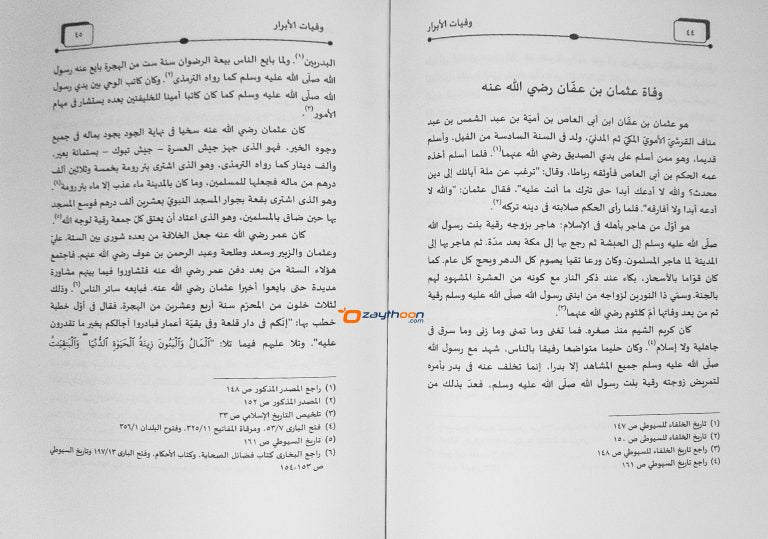 وفيات الأبرار
٤٤
وفاة عثمان بن عفّان رضي الله عنه
هو عثمان بن عفّان ابن أبي العاص بن أميّة بن عبد الشمس بن عبد
مناف القرشيّ الأمويّ المكيّ ثم المدنيّ، ولد فى السنة السادسة من الفيل، وأسلم
قديما، وهو ممن أسلم على يدي الصديق رضي الله عنهما(١). فلما أسلم أخذه
عمه الحكم بن أبي العاص فأوثقه رباطا، وقال: "ترغب عن ملة آبائك إلى دين
محدث؟ والله لا أدعك أبدا حتى تترك ما أنت عليه". فقال عثمان: "والله لا
أدعه أبدا ولا أفارقه". فلما رأى الحكم صلابته فى دينه تركه(٢).
هو أوّل من هاجر بأهله فى الإسلام: هاجر بزوجه رقية بنت رسول الله
صلّى الله عليه وسلم إلى الحبشة ثم رجع بها إلى مكة بعد مدّة، ثم هاجر بها إلى
المدينة لما هاجر المسلمون. وكان ورعا تقيا يصوم كل الدهر ويحج كل عام. كما
كان قوّاما بالأسحار، بكاء عند ذكر النار مع كونه من العشرة المشهود لهم
بالجنة. وسمّي ذا النورين لزواجه من ابنتى رسول الله صلّى الله عليه وسلم رقية
ثم من بعد وفاتها أمّ كلثوم رضي الله عنهما(٣).
كان كريم الشيم منذ صغره. فما تغنى وما تمنى وما زنى وما سرق فى
جاهلية ولا إسلام(٤). وكان حليما متواضعا رفيقا بالناس، شهد مع رسول الله
صلّى الله عليه وسلم جميع المشاهد إلا بدرا، إنما تخلف عنه فى بدر بأمره
لتمريض زوجته رقية بنت رسول الله صلّى الله عليه وسلم، فعدّ بذلك من
(١) تاريخ الخلفاء للسيوطي ص ١٤٧
(٢) تاريخ الخلفاء للسيوطى ص ١٥٠
(٣) راجع تاريخ الخلفاء للسيوطي ص ١٤٨
(٤) راجع تاريخ السيوطي ص ١٦١
وفيات الأبرار
٤٥
البدريين(١). ولما بايع الناس بيعة الرضوان سنة ست من الهجرة بايع عنه رسول
الله صلّى الله عليه وسلم كما رواه الترمذى(٢). وكان كاتب الوحي بين يدي رسول
الله صلّى الله عليه وسلم كما كان كاتبا أمينا للخليفتين بعده يستشار فى مهام
الأمور(٣).
كان عثمان رضي الله عنه سخيا فى نهاية الجود يجود بماله فى جميع
وجوه الخير. فهو الذى جهز جيش العسرة – جيش تبوك – بستمائة بعير،
وألف دينار كما رواه الترمذى. وهو الذى اشترى بئر رومة بخمسة وثلاثين ألف
درهم من ماله فجعلها للمسلمين، وما كان بالمدينة ماء عذب إلا ماء بئر رومة(٤).
وهو الذى اشترى بقعة بجوار المسجد النبويّ بعشرين ألف درهم فوسع المسجد
بها حين ضاق بالمسلمين، وهو الذى اعتاد أن يعتق كلّ جمعة رقبة لوجه الله(٥).
كان عمر رضي الله عنه جعل الخلافة من بعده شورى بين الستة. عليّ
وعثمان والزبير وسعد وطلحة وعبد الرحمن بن عوف رضي الله عنهم. فاجتمع
هؤلاء الستة من بعد دفن عمر رضي الله عنه فتشاوروا فيما بينهم مشاورة
مديدة حتى بايعوا أخيرا عثمان رضي الله عنه، فبايعه سائر الناس(٦). وذلك
لثلاث خلون من المحرّم سنة أربع وعشرين من الهجرة. فقال فى أوّل خطبة
خطب بها: "إنّكم فى دار قلعة وفى بقيّة أعمار فبادروا آجالكم بخير ما تقدرون
عليه". وتلا عليهم فيما تلا: "ٱلْمَالُ وَٱلْبَنُونَ زِينَةُ ٱلْحَيَوٰةِ ٱلدُّنْيَا ۖ وَٱلْبَٰقِيَٰتُ
(١) راجع المصدر المذكور ص ١٤٨
(٢) المصدر المذكور ص ١٥٢
(٣) تلخيص التاريخ الإسلامي ص ٣٣
(٤) فتح البارى ٥٣/٧، ومرقاة المفاتيح ٣٢٥/١١، وفتوح البلدان ٣٥٦/١
(٥) تاريخ السيوطي ص ١٦١
(٦) راجع البخارى كتاب فضائل الصحابة، وكتاب الأحكام، وفتح البارى ١٩٧/١٣ وتاريخ السيوطي
ص ١٥٣-١٥٤
Ozaythoon
.com